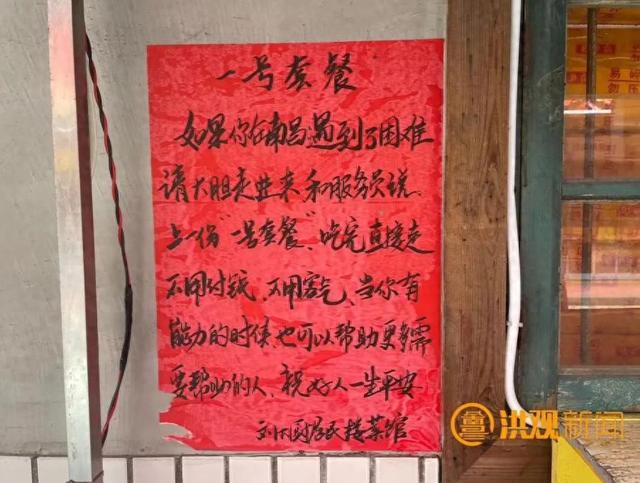 一号套餐
如果你在南昌遇到了困难
请大胆走进来和服务员说
上一份"一号套餐"。吃完直接走
不用付钱、不用客气、当你有
能力的时候也可以帮助更多需
要帮助的人、祝好人一生平安
刘大厨居民楼菜馆
洪观新闻
易
勿压